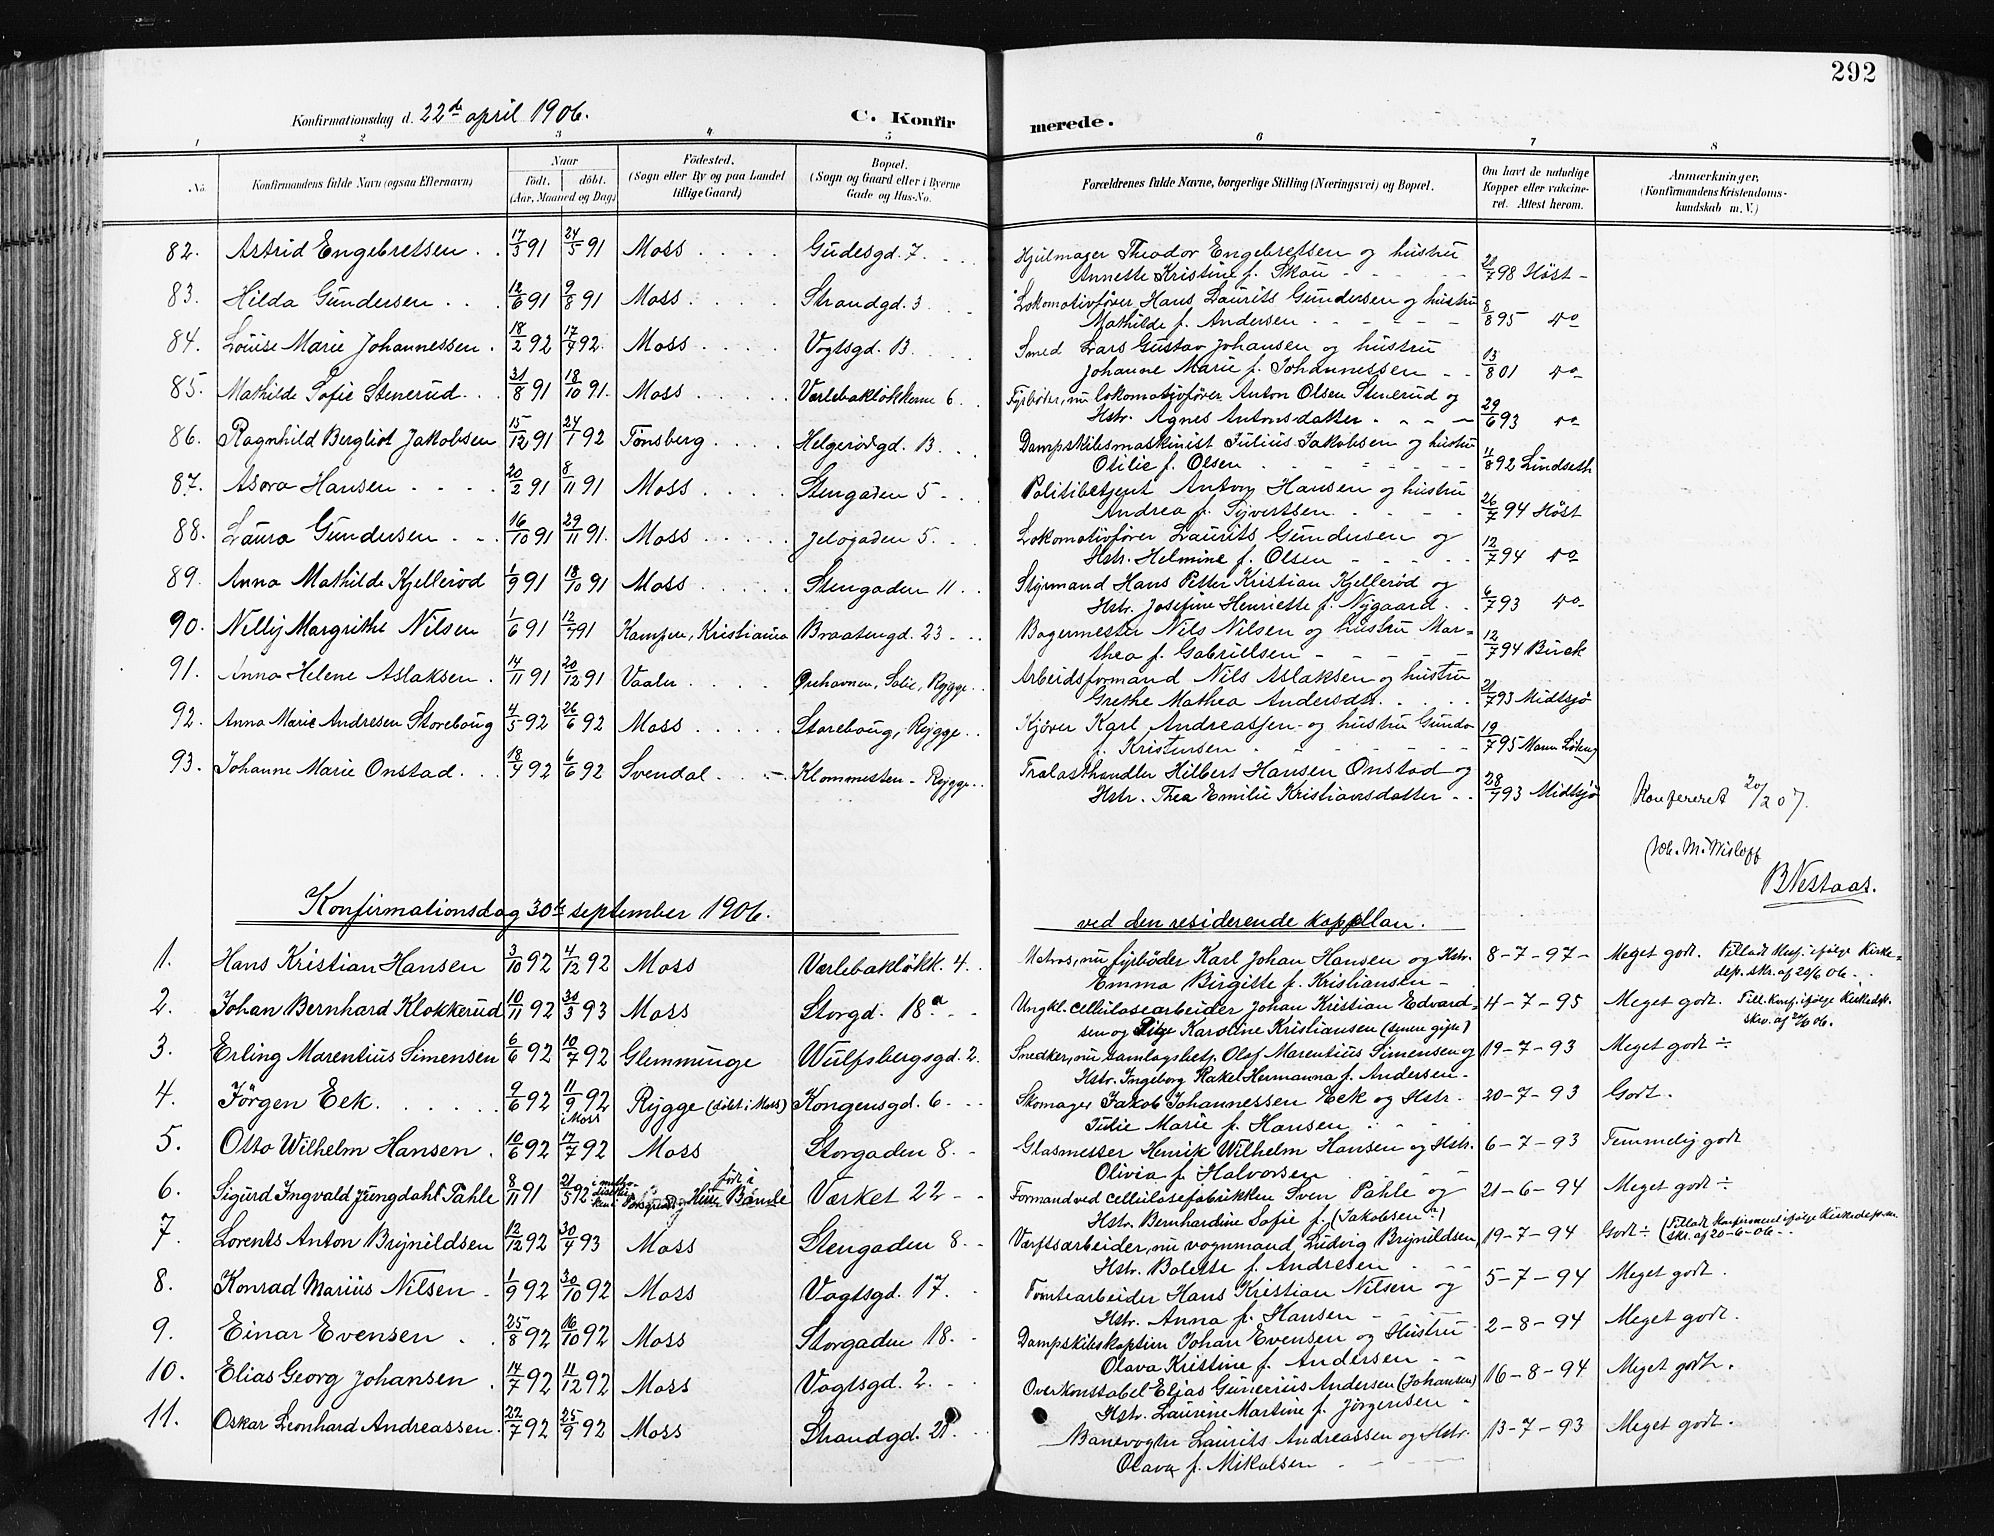 292
Konfirmationsdag d. 22de april 1906.
C. Konfirmerede.
1 2 3 4 5 6 7 8
No.
Konfirmandens fulde Navn (ogsaa Efternavn)
Naar
født. døbt.
(Aar, Maaned og Dag)
Fødested.
(Sogn eller By og paa Landet
tillige Gaard)
Bopæl.
(Sogn og Gaard eller i Byerne
Gade og Hus-No.
Forældrenes fulde Navne, borgerlige Stilling (Næringsvei) og Bopæl.
Om havt de naturlige
Kopper eller vakcine-
ret. Attest herom.
Anmærkninger.
(Konfirmandens Kristendoms-
kundskab m. V.)
82. Astrid Engebretsen 17/3 91 24/5 91 Moss Gudesgd. 7 Hjulmager Theodor Engebretsen og hustru
Annette Kristine f. Skou 21/7 98 Høst
83. Hilda Gundersen 12/6 91 9/8 91 Moss Strandgd. 3 Lokomotivfører Hans Laurits Gundersen og hustru
Mathilde f. Andersen 8/8 95 do
84. Louise Marie Johannessen 18/2 92 17/4 92 Moss Vogtsgd. 13 Smed Lars Gustav Johansen og hustru
Johanne Marie f. Johannessen 13/8 01 do
85. Mathilde Sofie Stenerud 31/8 91 18/10 91 Moss Værlebakløkkerne 6 Fyrbøter, nu lokomotivfører Anton Olsen Stenerud og
Hstr. Agnes Antonsdatter 29/6 93 do
86. Ragnhild Bergliot Jakobsen 15/12 91 24/1 92 Tønsberg Helgerødgd. 13 Dampskibsmaskinist Julius Jakobsen og hustru
Otilie f. Olsen 11/8 92 Lindseth
87. Asora Hansen 20/2 91 8/11 91 Moss Stengaden 5 Politibetjent Anton Hansen og hustru
Andrea f. Syvertsen 26/7 94 Høst
88. Laura Gundersen 16/10 91 29/11 91 Moss Jeløgaden 5 Lokomotivfører Laurits Gundersen og
Hstr. Helmine f. Olsen 12/7 94 do
89. Anna Mathilde Kjellerød 1/9 91 18/10 91 Moss Stengaden 11 Styrmand Hans Petter Kristian Kjellerød og
Hstr. Josefine Henriette f. Nygaard 6/7 93 do
90. Nelly Margrithe Nilsen 1/6 91 12/7 91 Kampen, Kristiania Braatengd. 23 Bagermester Nils Nilsen og hustru Mar-
thea f. Gabrielsen 12/7 94 Birck
91. Anna Helene Aslaksen 14/11 91 20/12 91 Vaaler Ørehavnen, Solie, Rygge Arbeidsformand Nils Aslaksen og hustru
Grethe Mathea Andersdtr. 21/7 93 Midtsjø
92. Anna Marie Andresen Storebaug 4/5 92 26/6 92 Moss Storebaug, Rygge Kjører Karl Andreassen og hustru Gunda
f. Kristensen 19/7 95
93. Johanne Marie Onstad 18/4 92 6/6 92 Svendal Klommesten - Rygge Trælasthandler Hilbert Hansen Onstad og
Hstr. Thea Emilie Kristiansdatter 28/7 93 Midtsjø Konfereret 20/2 07.
Joh. M. Wisløff
B Nestaas.
Konfirmationsdag 30te september 1906. ved den residerende kapellan.
1. Hans Kristian Hansen 3/10 92 4/12 92 Moss Værlebakløkk. 4 Matros, nu fyrbøder Karl Johan Hansen og Hstr.
Emma Birgitte f. Kristiansen 8-7-97 Meget godt. Tilladt konf. ifølge Kirke-
dep. skr. af 20/6 06.
2. Johan Bernhard Klokkerud 10/11 92 31/3 93 Moss Storgd. 18a Ungkl. cellulosearbeider Johan Kristian Edvard-
sen og Pige Karoline Kristiansen (senere gifte) 4-7-95 Meget godt. Till. Konf. ifølge Kirkedep.
skr. af 20/6 06.
3. Erling Marentius Simensen 6/6 92 10/7 92 Glemminge Wulfsbergsgd. 2. Snedker, nu samlagsbetj. Olaf Marentius Simensen og
Hstr. Ingeborg Rakel Hermanna f. Andersen 19-7-93 Meget godt ÷
4. Jörgen Eek 9/6 92 11/9 92 i Moss Rygge (døbt i Moss) Kongensgd. 6 Skomager Jakob Johannessen Eek og Hstr.
Julie Marie f. Hansen 20-7-93 Godt.
5. Otto Wilhelm Hansen 10/6 92 17/7 92 Moss Storgaden 8 Glasmester Henrik Wilhelm Hansen og Hstr.
Olivia f. Halvorsen 6-7-93 Temmelig godt
6. Sigurd Ingvald Jungdahl Pahle 8/11 91 21/5 92 født i Bamle Værket 22 Formand ved cellulosefabrikken Sven Pahle og
Hstr. Bernhardine Sofie f. (Jakobsen?) 21-6-94 Meget godt ÷
7. Lorents Anton Brynildsen 12/12 92 30/4 93 Moss Stengaden 8 Værftsarbeider, nu vognmand Ludvig Brynildsen,
Hstr. Bolette f. Andresen 19-7-94 Godt ÷ (Tilladt konfirmert ifølge Kirkedep.
skr. af 20-6-06
8. Konrad Marius Nilsen 1/9 92 30/10 92 Moss Vogtsgd. 17 Tomtearbeider Hans Kristian Nilsen og
Hstr. Anna f. Hansen 5-7-94 Meget godt.
9. Einar Evensen 25/8 92 16/10 92 Moss Storgaden 18. Dampskibskaptein Johan Evensen og Hustru
Olava Kristine f. Andersen 2-8-94 Meget godt.
10. Elias Georg Johansen 14/7 92 11/12 92 Moss Vogtsgd. 2. Overkonstabel Elias Gunerius Andersen (Johansen)
Hstr. Laurine Martine f. Jörgensen 16-8-94 Meget godt.
11. Oskar Leonhard Andreassen 22/7 92 25/9 92 Moss Strandgd. 21. Banevogter Laurits Andreassen og Hstr.
Olava f. Mikalsen 13-7-93 Meget godt.